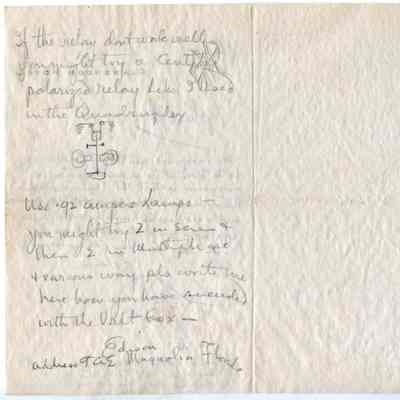 If the relay dont work well
you might try a Central
polarized relay like I used
in the Quadruplex
Use .92 ampere Lamps —
you might try 2 in series &
then 2 in multiple arc
& various ways pls write me
here how you have succeeded
with the Volt box —
Edison
address TAE Magnolia Florida